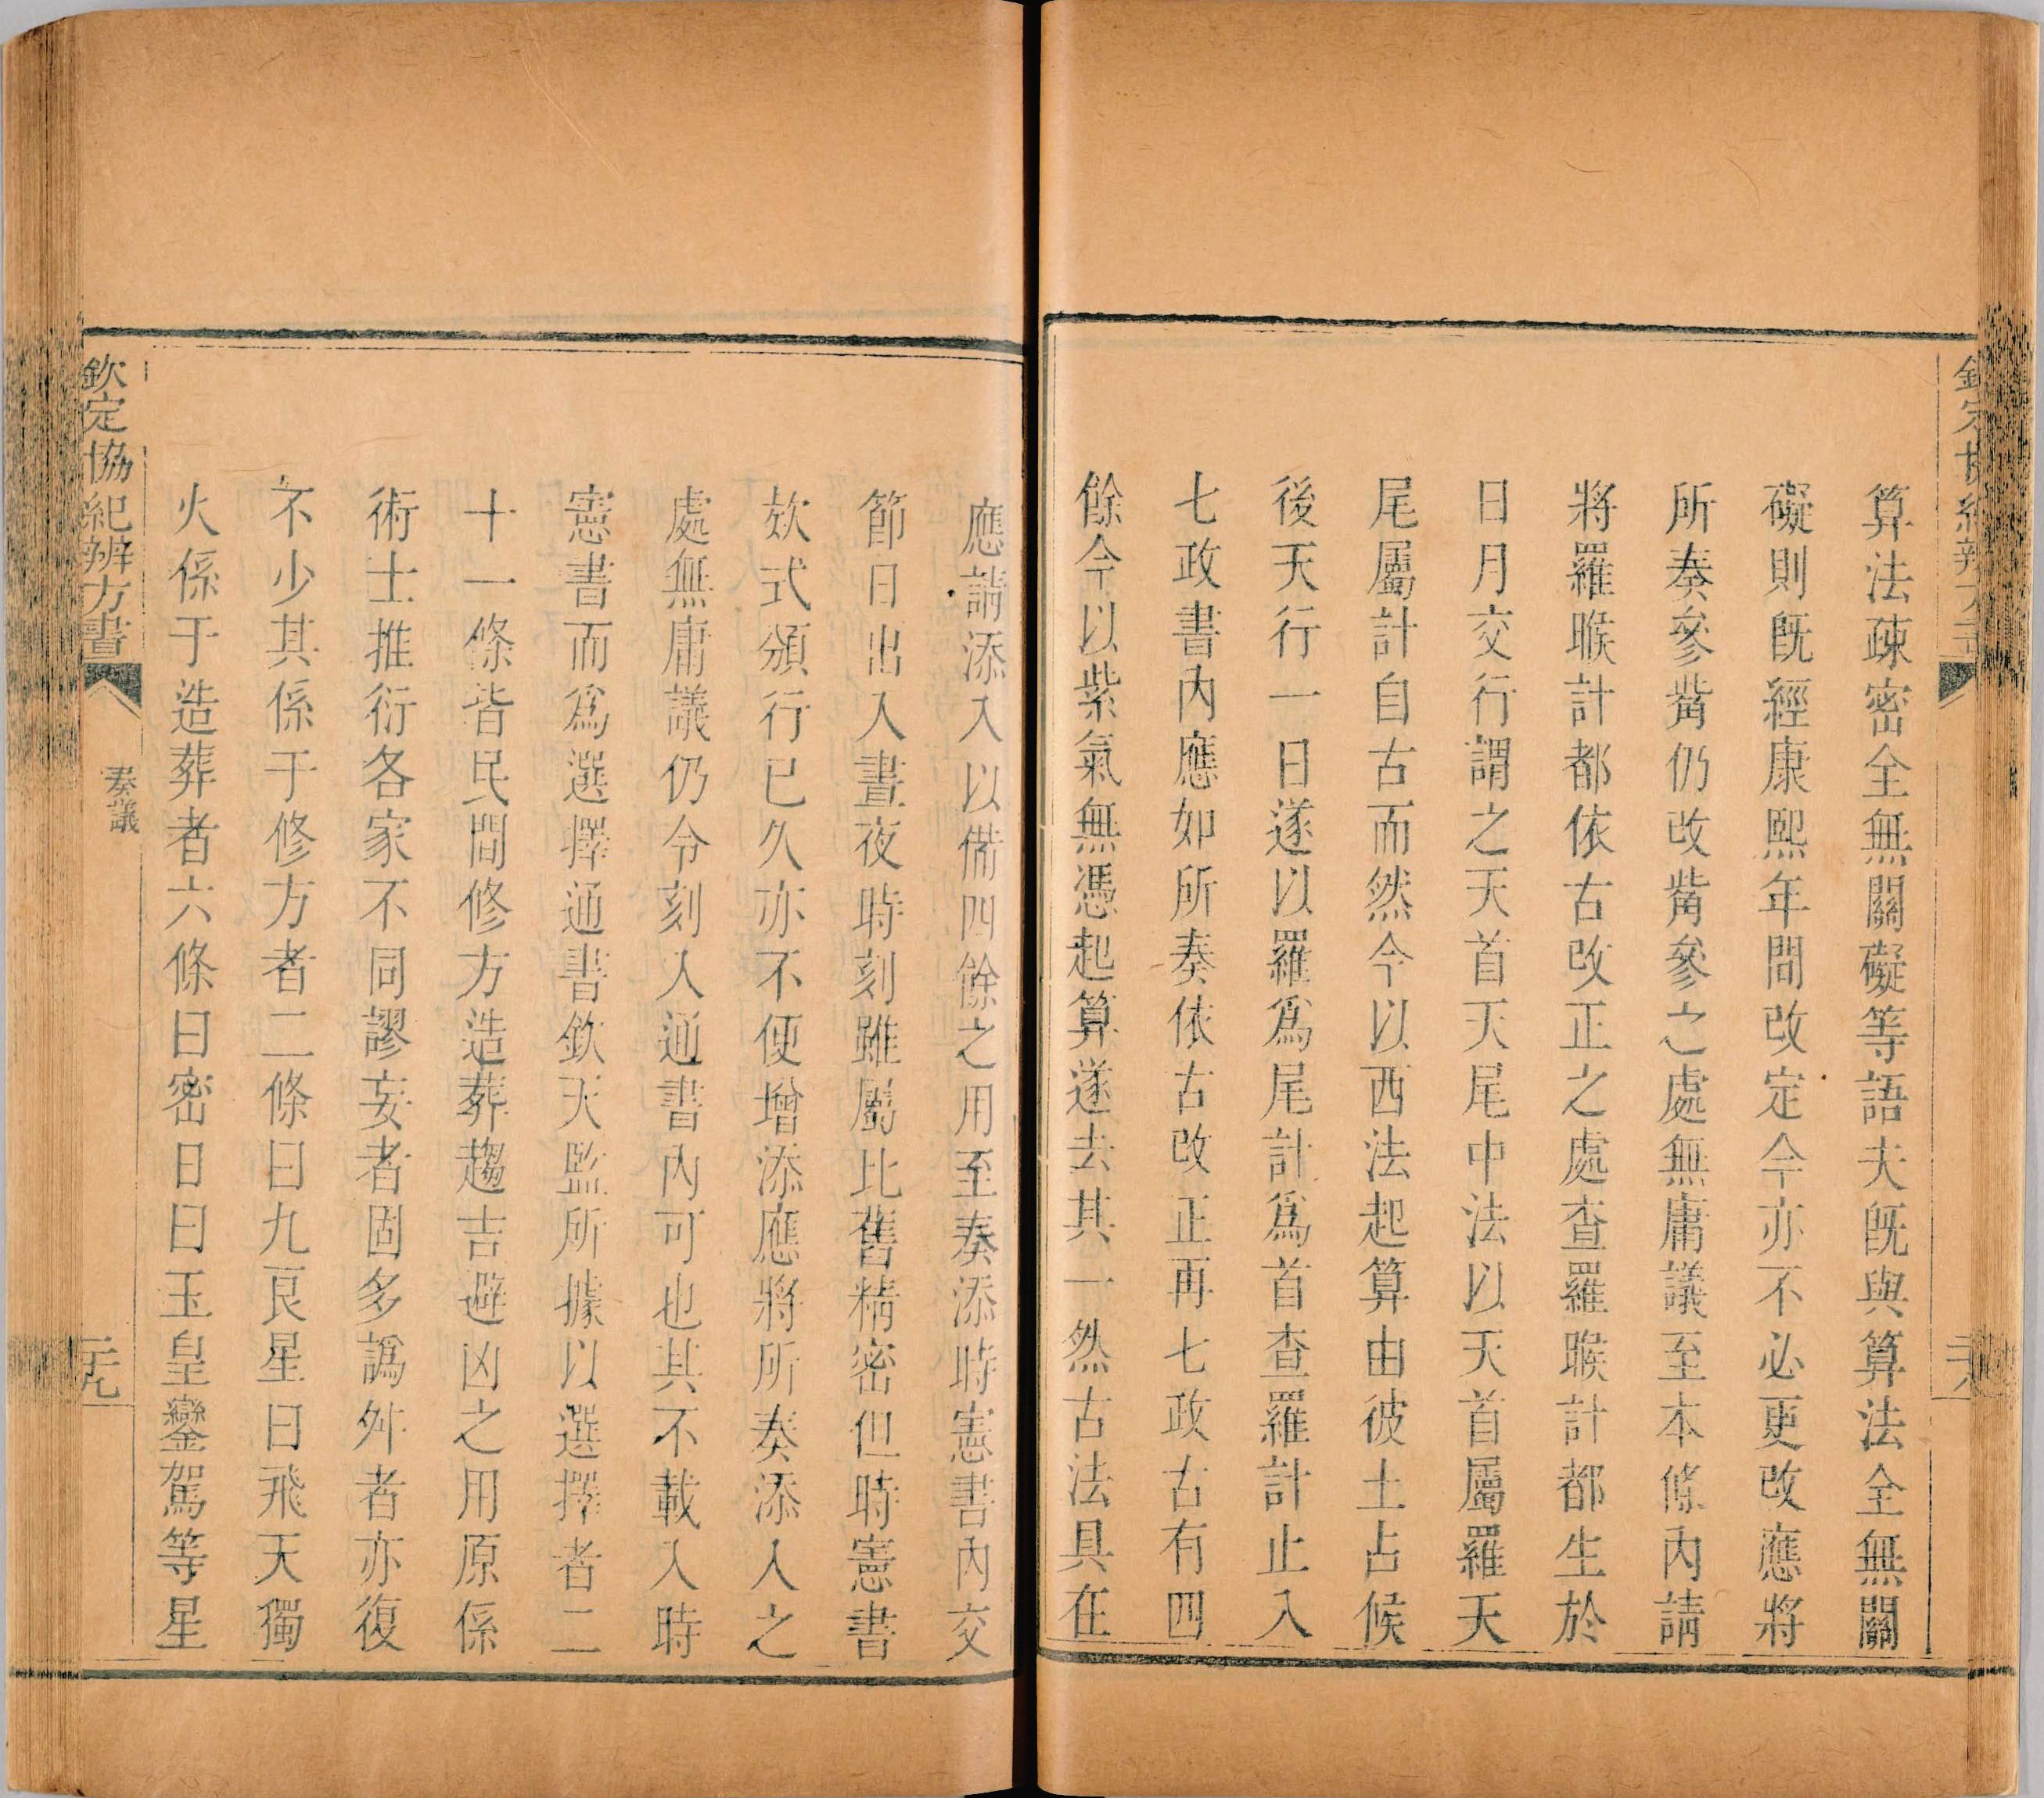 算法疎密全無關礙等語夫旣與算法全無關
礙則旣經康熙年間改定今亦不必更改應將
所奏參觜仍改觜參之處無庸議至本條内請
將羅睺計都依古改正之處查羅睺計都生於
日月交行謂之天首天尾中法以天首屬羅天
尾屬計自古而然今以西法起算由彼土占候
後天行一日遂以羅爲尾計爲首查羅計止入
七政書内應如所奏依古改正再七政古有四
餘今以紫氣無憑起算遂去其一然古法具在
應請添入以備四餘之用至奏添時憲書内交
節日出入晝夜時刻雖屬比舊精密但時憲書
欵式頒行已久亦不便增添應將所奏添入之
處無庸議仍令刻入通書内可也其不載入時
憲書而爲選擇通書欽天監所據以選擇者二
十一條皆民間修方造葬趨吉避凶之用原係
術士推衍各家不同謬妄者固多譌舛者亦復
不少其係于修方者二條曰九良星曰飛天獨
火係于造葬者六條曰密日曰玉皇鑾駕等星
欽定協紀辨方書
奏議
二十九